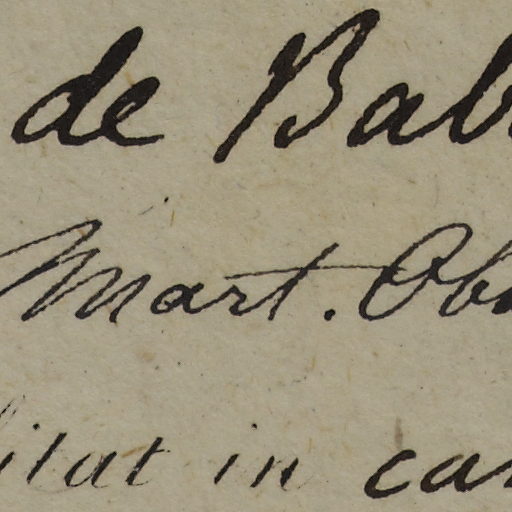 de Bab
Mart. Ob
itat in ca